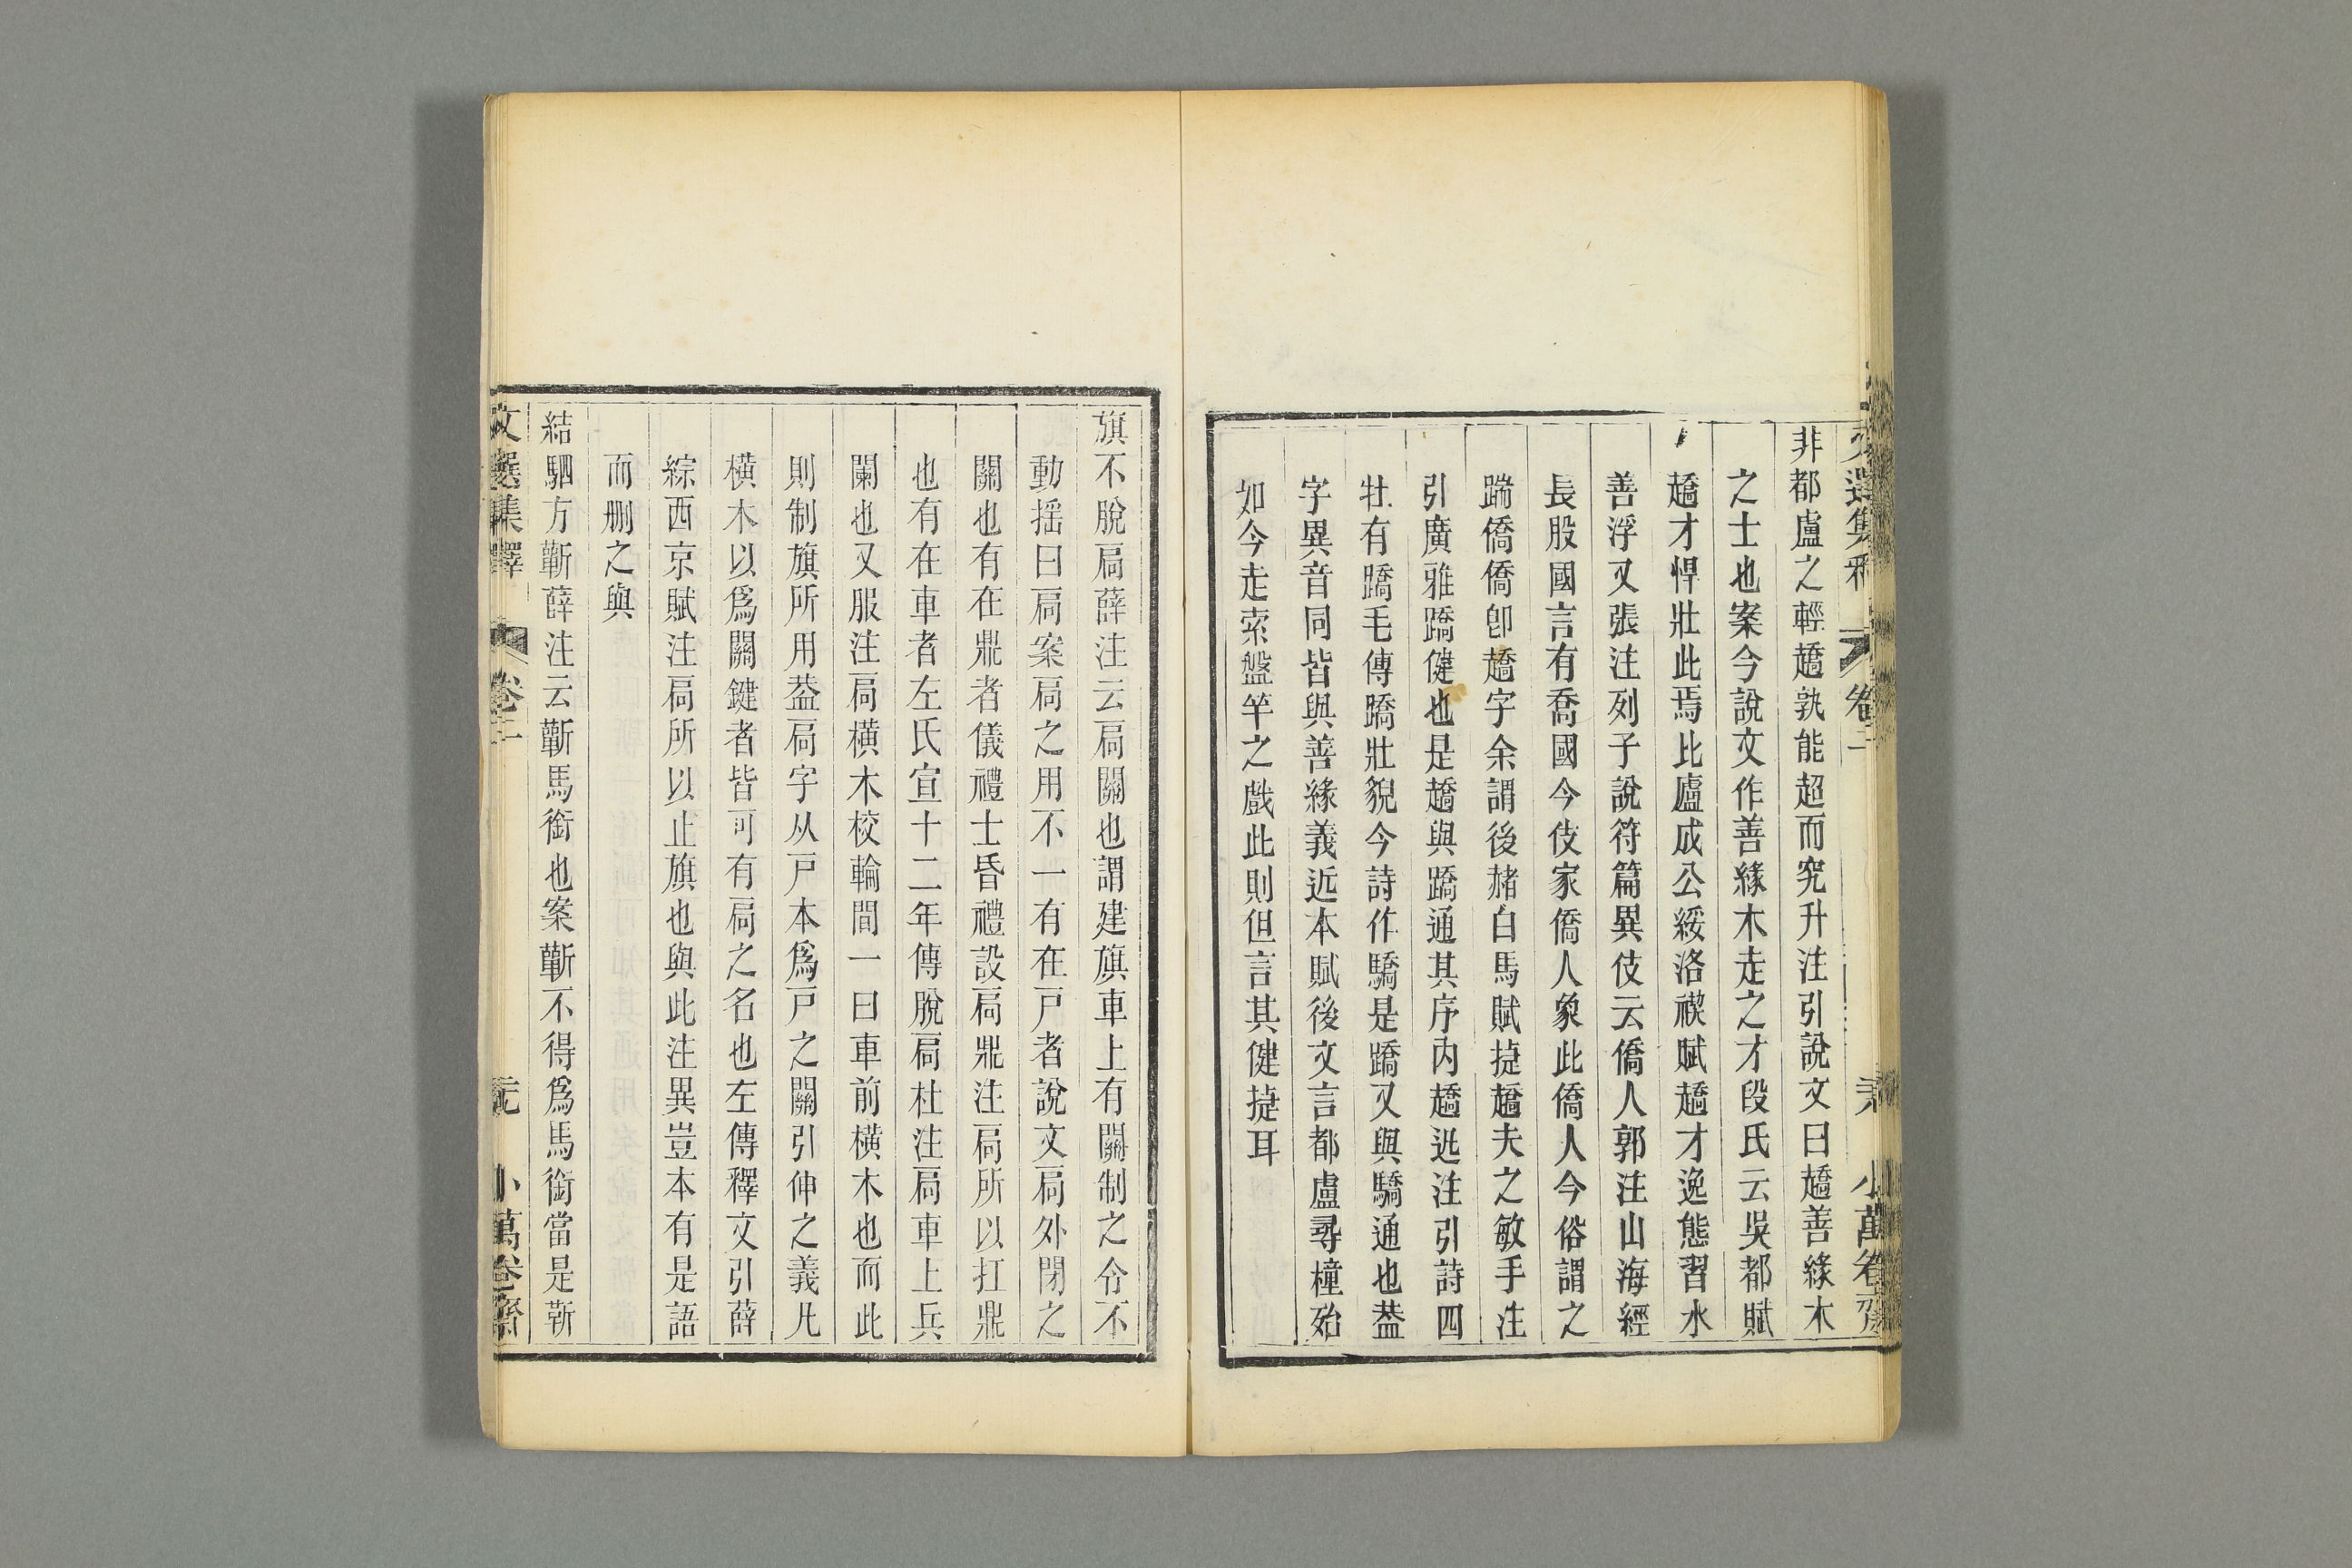 文選集釋 卷三 小萬卷齋
非都盧之輕趫孰能超而究升注引說文曰趫善緣木
之士也案今說文作善緣木走之才段氏云吳都賦
趫才悍壯此焉比廬成公綏洛禊賦趫才逸態習水
善浮又張注列子說符篇異伎云僑人郭注山海經
長股國言有喬國今伎家僑人象此僑人今俗謂之
踹僑僑卽趫字余謂後赭白馬賦捷趫夫之敏手注
引廣雅蹻健也是趫與蹻通其序內趫迅注引詩四
牡有蹻毛傳蹻壯貌今詩作驕是蹻又與驕通也葢
字異音同皆與善緣義近本賦後文言都盧尋橦殆
如今走索盤竿之戲此則但言其健捷耳
旗不脫扃薛注云扃關也謂建旗車上有關制之令不
動搖曰扃案扃之用不一有在戶者說文扃外閉之
關也有在鼎者儀禮士昏禮設扃鼎注扃所以扛鼎
也有在車者左氏宣十二年傳脫扃杜注扃車上兵
闌也又服注扃橫木校輪間一曰車前橫木也而此
則制旗所用葢扃字从戶本爲戶之關引伸之義凡
橫木以爲關鍵者皆可有扃之名也左傳釋文引薛
綜西京賦注扃所以止旗也與此注異豈本有是語
而刪之與
結駟方蘄薛注云蘄馬銜也案蘄不得爲馬銜當是靳
文選集釋 卷三 元 小萬卷齋